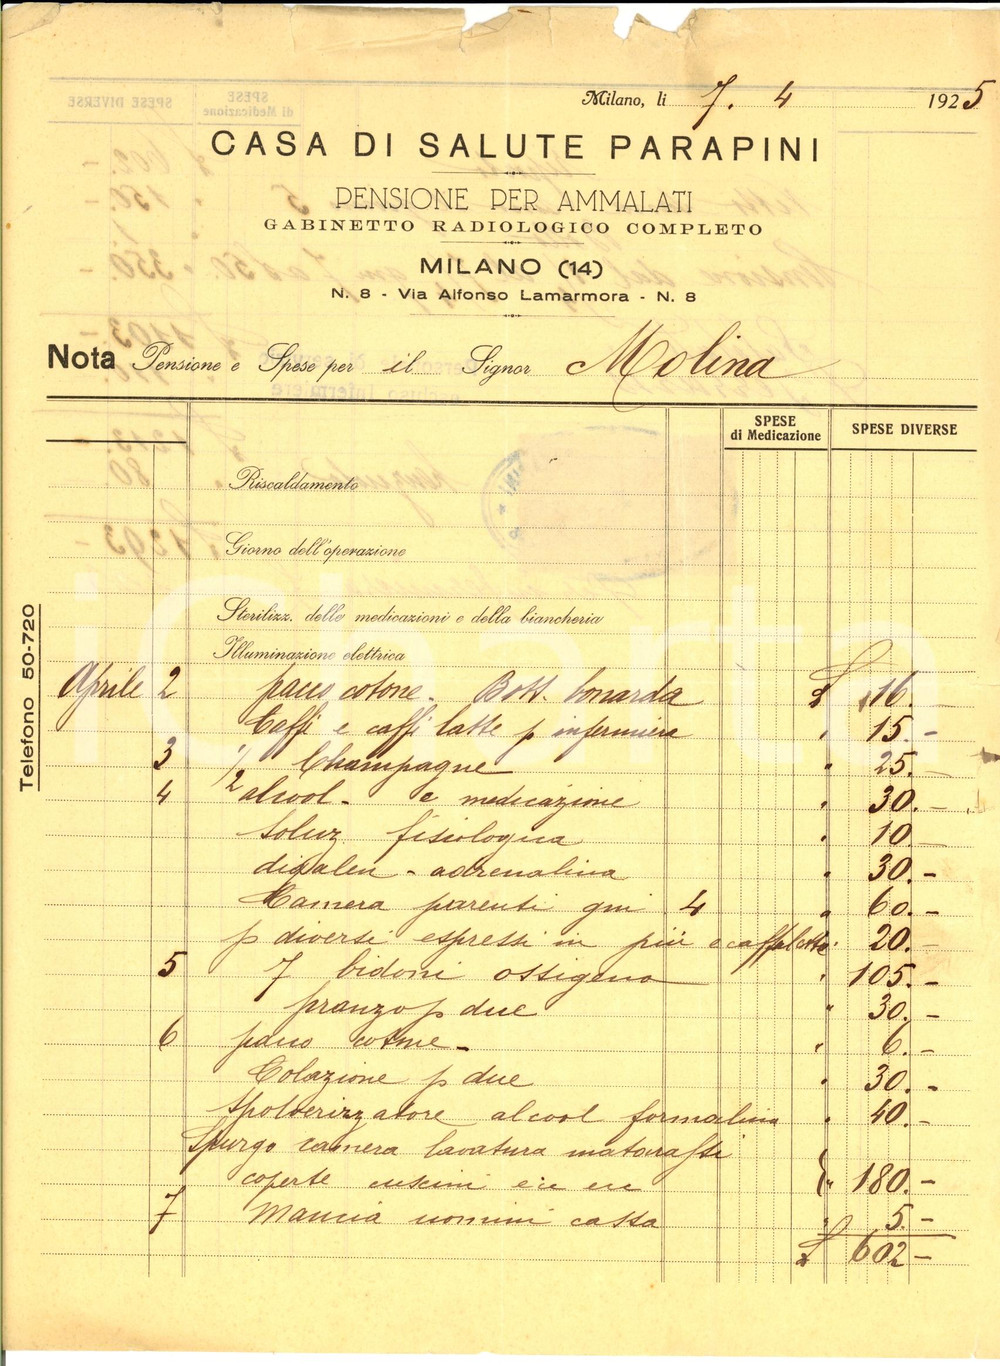 Milano, li 7. 4 1925
CASA DI SALUTE PARAPINI
PENSIONE PER AMMALATI
GABINETTO RADIOLOGICO COMPLETO
MILANO (14)
N. 8 - Via Alfonso Lamarmora - N. 8
Nota Pensione e Spese per il Signor Molina
SPESE di Medicazione SPESE DIVERSE
Riscaldamento
Giorno dell'operazione
Sterilizz. delle medicazioni e della biancheria
Illuminazione elettrica
Telefono 50-720
Aprile 2 pacco cotone - Bott. £ 16.-
Caffi e caffi latte p infermiera " 15.-
3 1/2 Champagne " 25.-
4 alcool - e medicazione " 30.-
Soluz fisiologica " 10.-
digalen - adrenalina " 30.-
Camera parenti gni 4 " 60.-
p diversi espressi in più e caffelatte " 20.-
5 7 bidoni ossigeno " 105.-
pranzo p due " 30.-
6 pacco cotone - " 6.-
Colazione p due " 30.-
Spolverizzatore alcool formalina " 40.-
Spurgo camera lavatura matarassi
coperte cuscini ecc ecc " 180.-
7 Mancia uomini cassa " 5.-
£ 602-